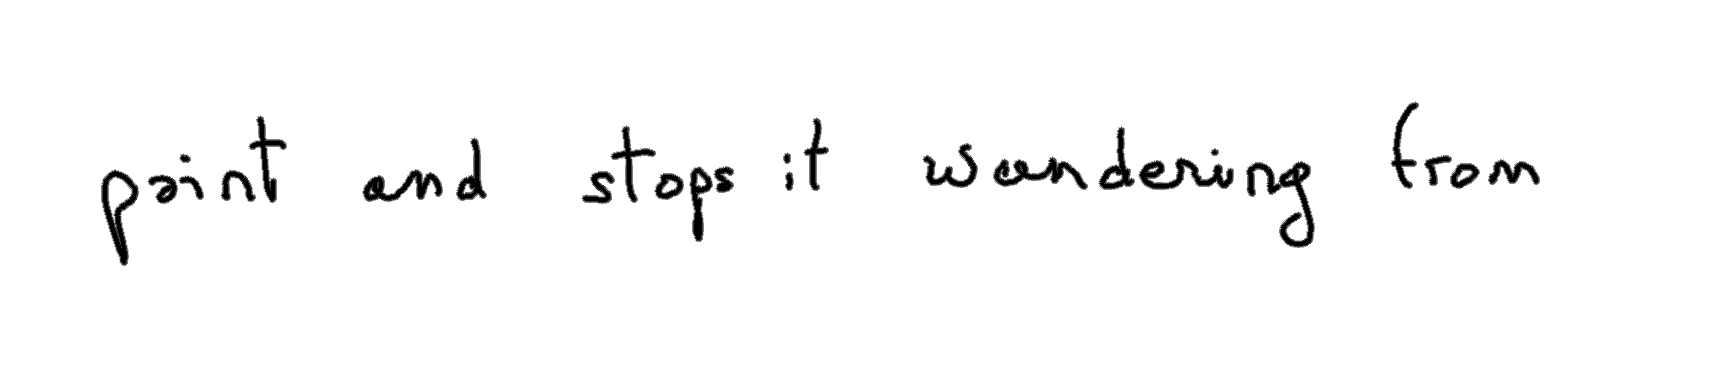 point and stops it wandering from